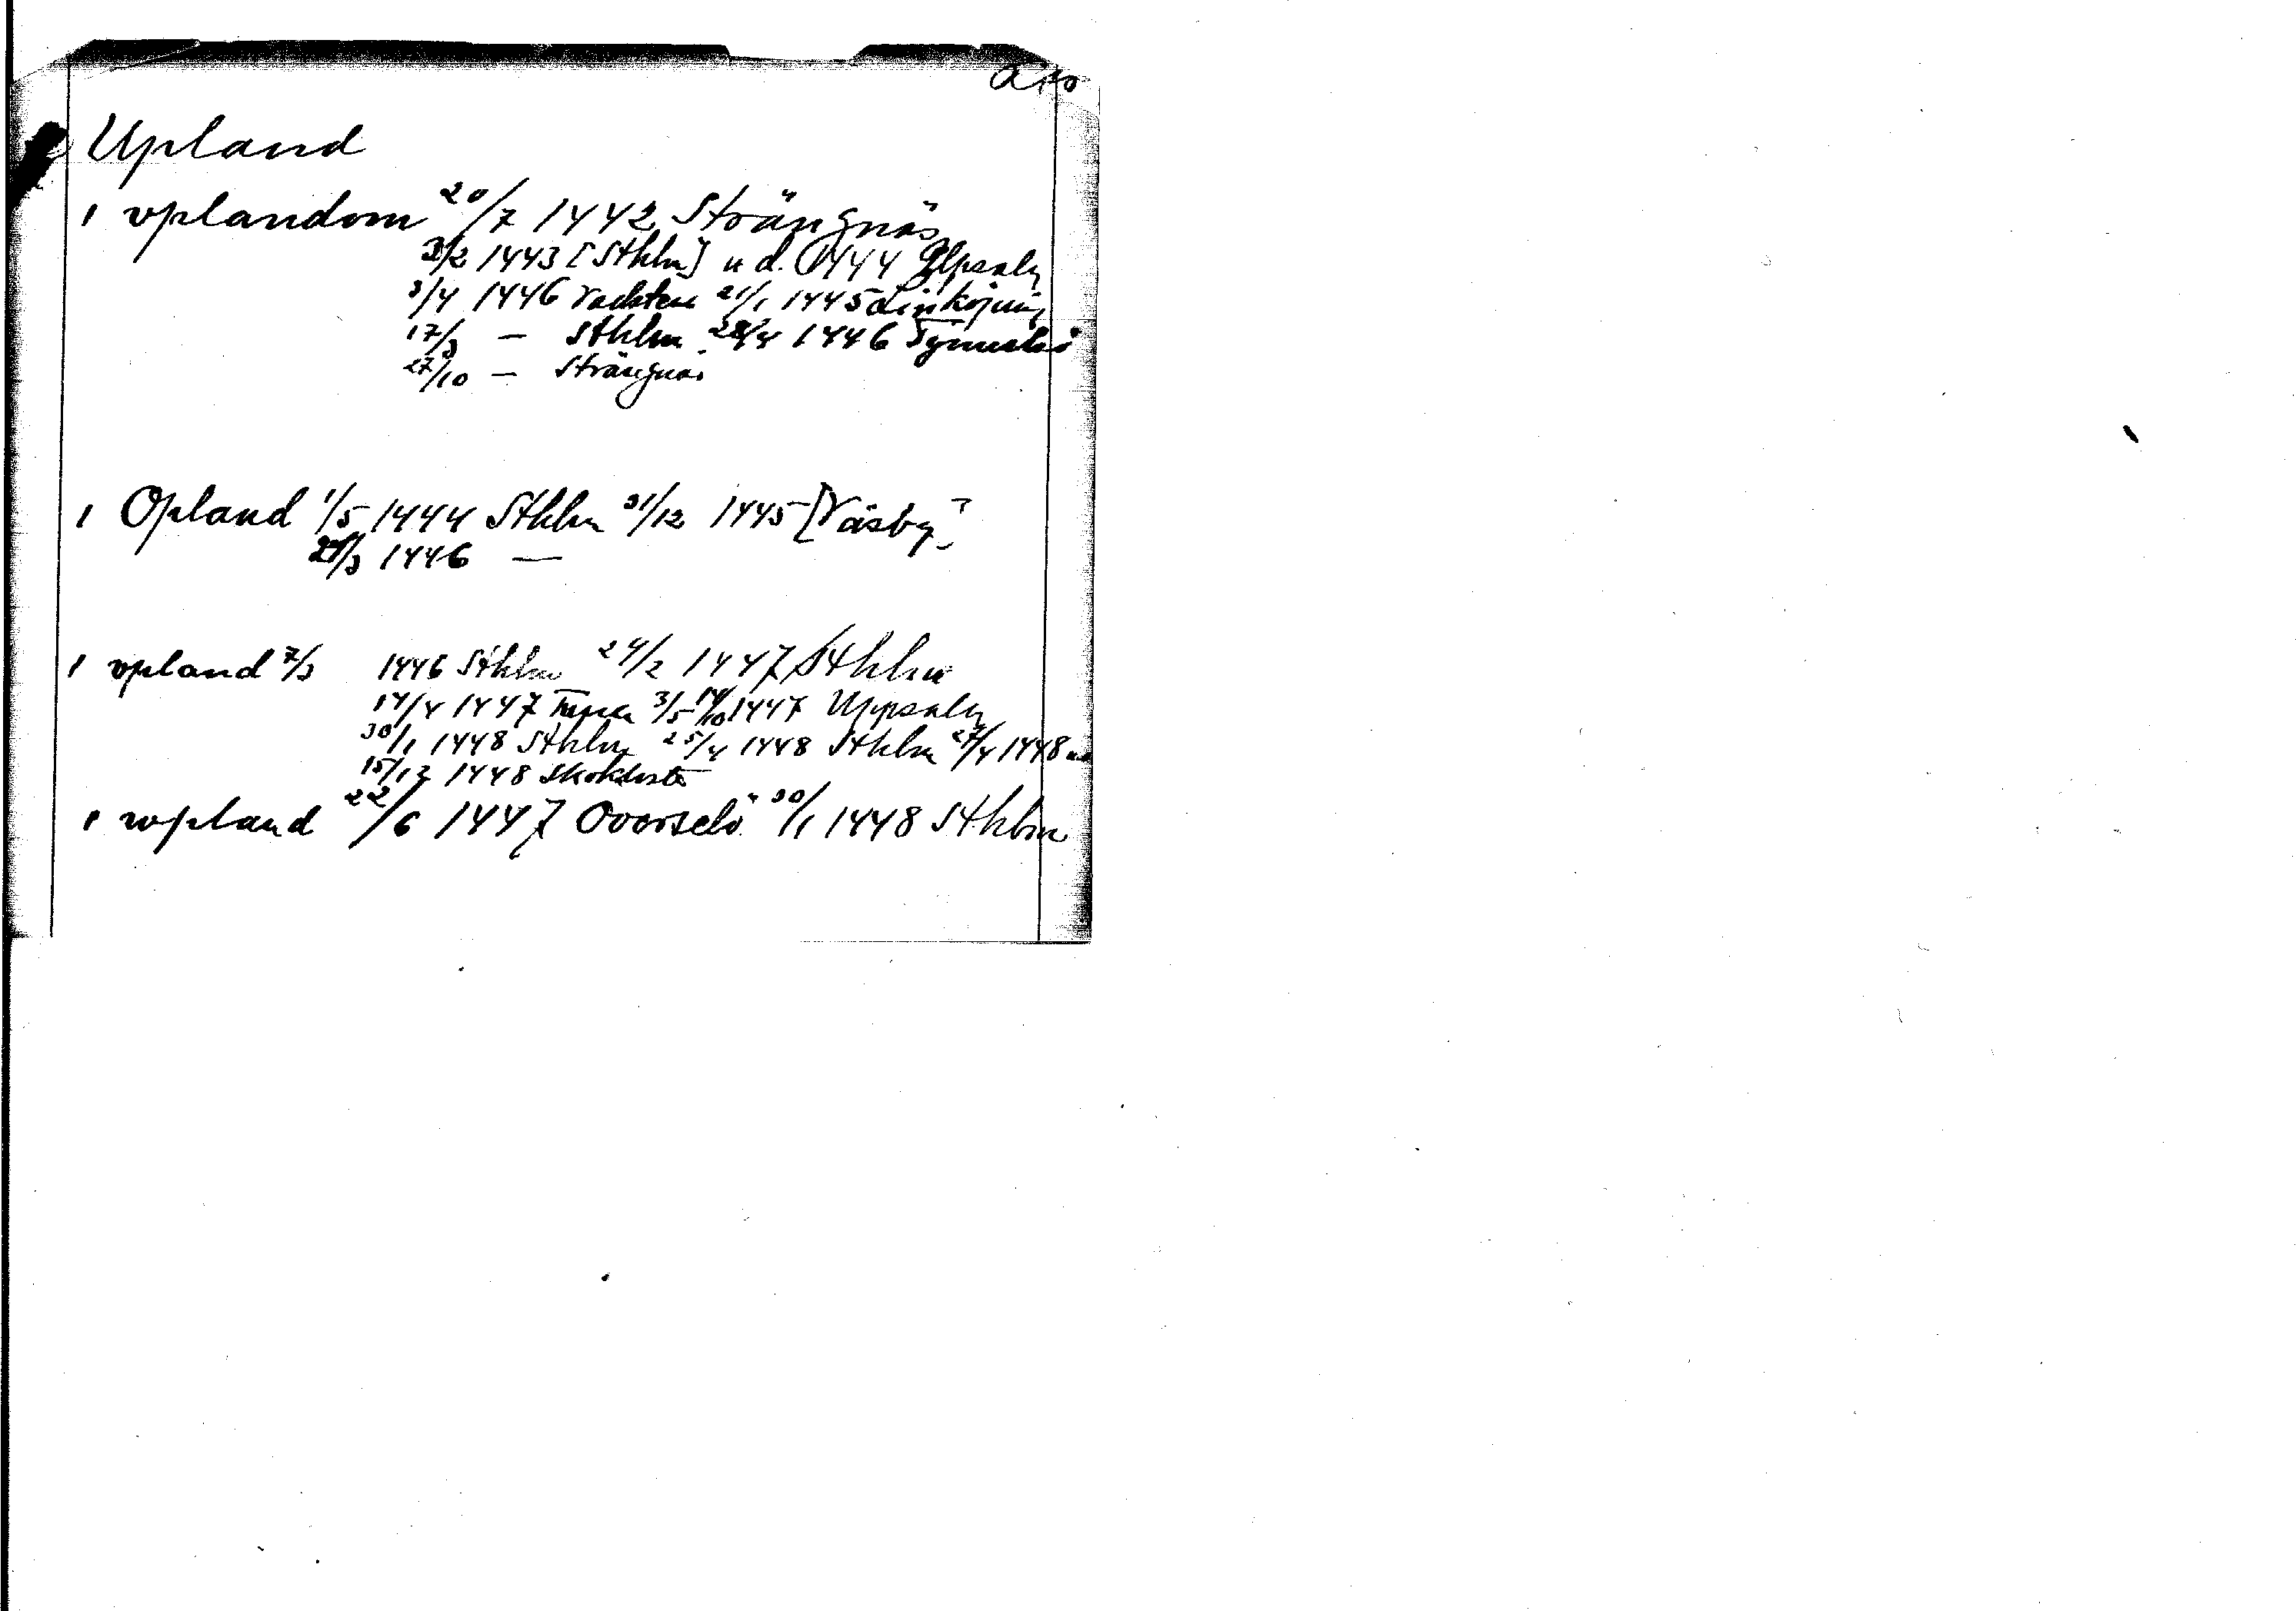 Upland
1 vplandom 20/7 1442 Strängnäs
3/2 1443 [Sthlm] u d. 1444 Upsala
3/4 1446 Vadstena 21/1 1445 Linköping
17/3 — Sthlm 28/4 1446
27/10 — Strängnäs
1 Opland 1/5 1444 Sthlm 31/12 1445 [Väsby]
1446 —
1 vpland 7/3 1446 Sthlm 24/2 1447 Sthlm
14/4 1447 3/5 14/10 1447 Uppsala
30/1 1448 Sthlm 25/4 1448 Sthlm 27/4 1448
15/12 1448 Skokloster
1 wpland 22/6 1447 Overselö 30/1 1448 Sthlm